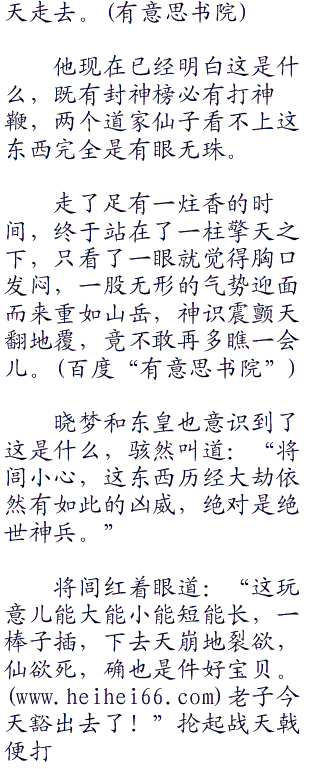 天走去。(有意思书院)
他现在已经明白这是什
么，既有封神榜必有打神
鞭，两个道家仙子看不上这
东西完全是有眼无珠。
走了足有一炷香的时
间，终于站在了一柱擎天之
下，只看了一眼就觉得胸口
发闷，一股无形的气势迎面
而来重如山岳，神识震颤天
翻地覆，竟不敢再多瞧一会
儿。(百度“有意思书院”)
晓梦和东皇也意识到了
这是什么，骇然叫道：“将
闾小心，这东西历经大劫依
然有如此的凶威，绝对是绝
世神兵。”
将闾红着眼道：“这玩
意儿能大能小能短能长，一
棒子插，下去天崩地裂欲，
仙欲死，确也是件好宝贝。
(www.heihei66.com)老子今
天豁出去了！”抡起战天戟
便打